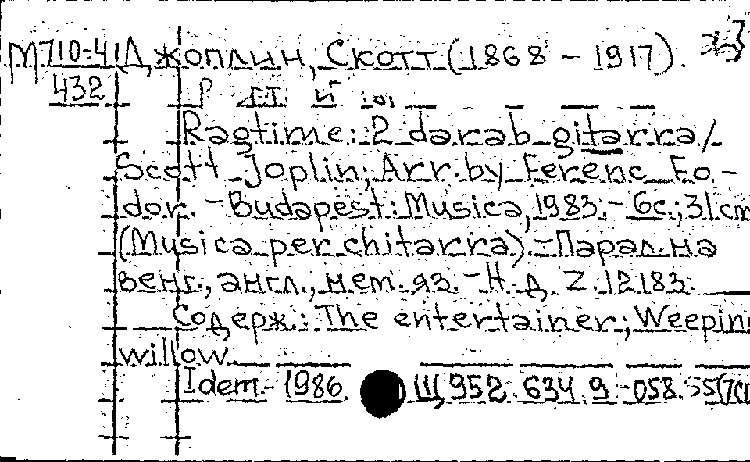 М710-4 Джоплин, Скотт (1868 - 1917).
432
Ragtime: 2 darab gitarra/
Scott Joplin; Arr. by Ferenc Fo-
dor. - Budapest: Musica, 1983. - 6с.; 31 cm
(Musica per chitarra). - Парал. на
венг., англ., нем. яз. - Н. д. Z. 12183.
Содерж.: The entertainer; Weepin
willow.
Idem. - 1986. Ш, 952. 634. 9. - 058.